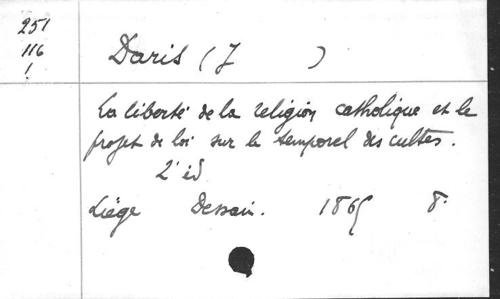 251
116
!
Daris (J )
La liberté de la religion catholique et le
projet de loi sur le temporel des cultes.
2e éd
Liége Dessain. 1865 8°